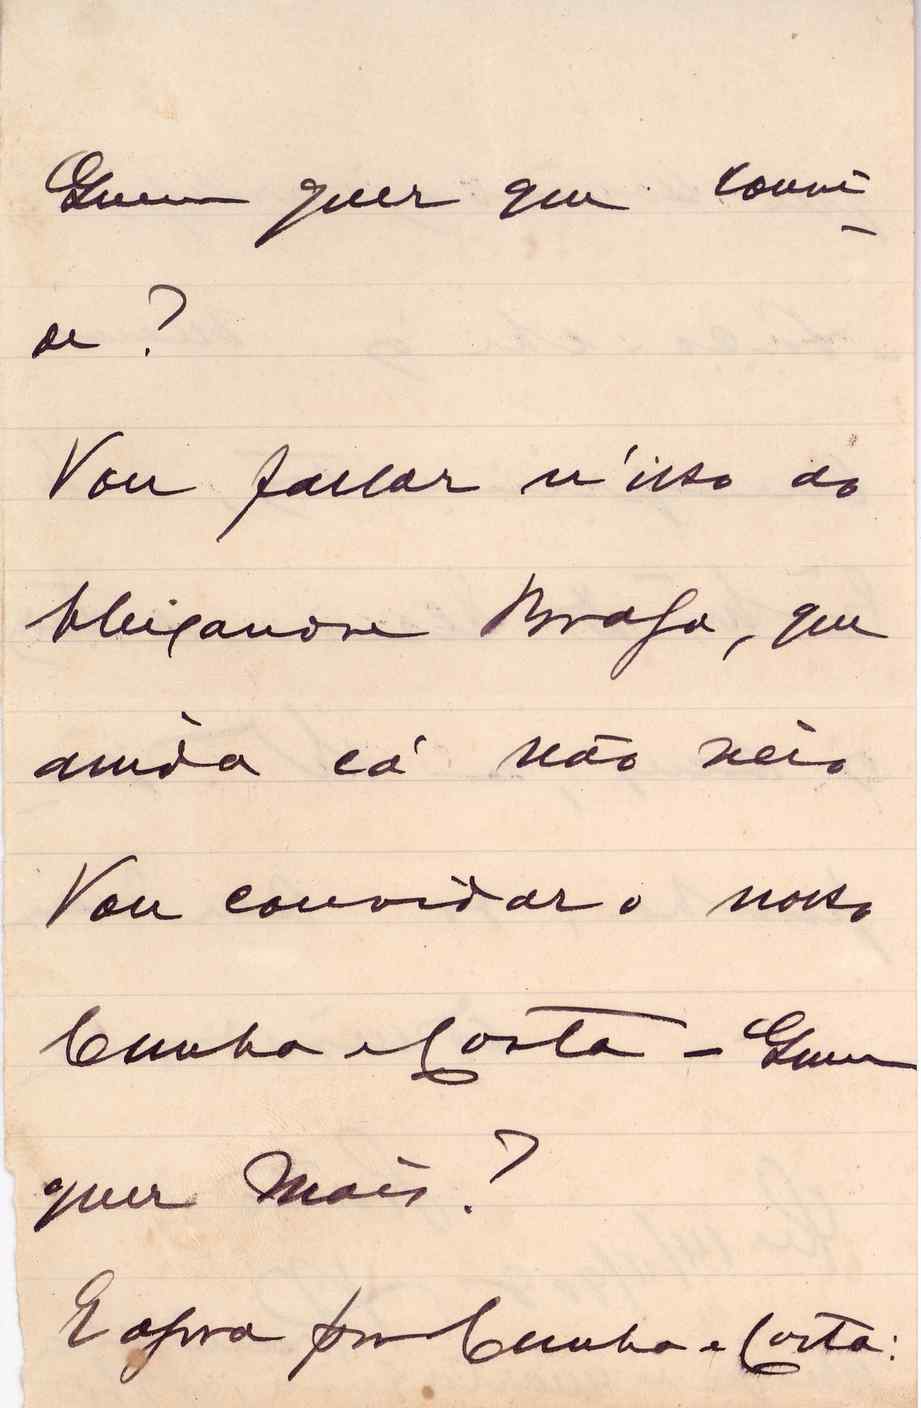 Quem quer que convi-
de?
Vou fallar n'isso ao
Alexandre Braga, que
ainda cá não veio
Vou convidar o nosso
Cunha e Costa – Quem
quer mais?
E agora por Cunha e Costa: